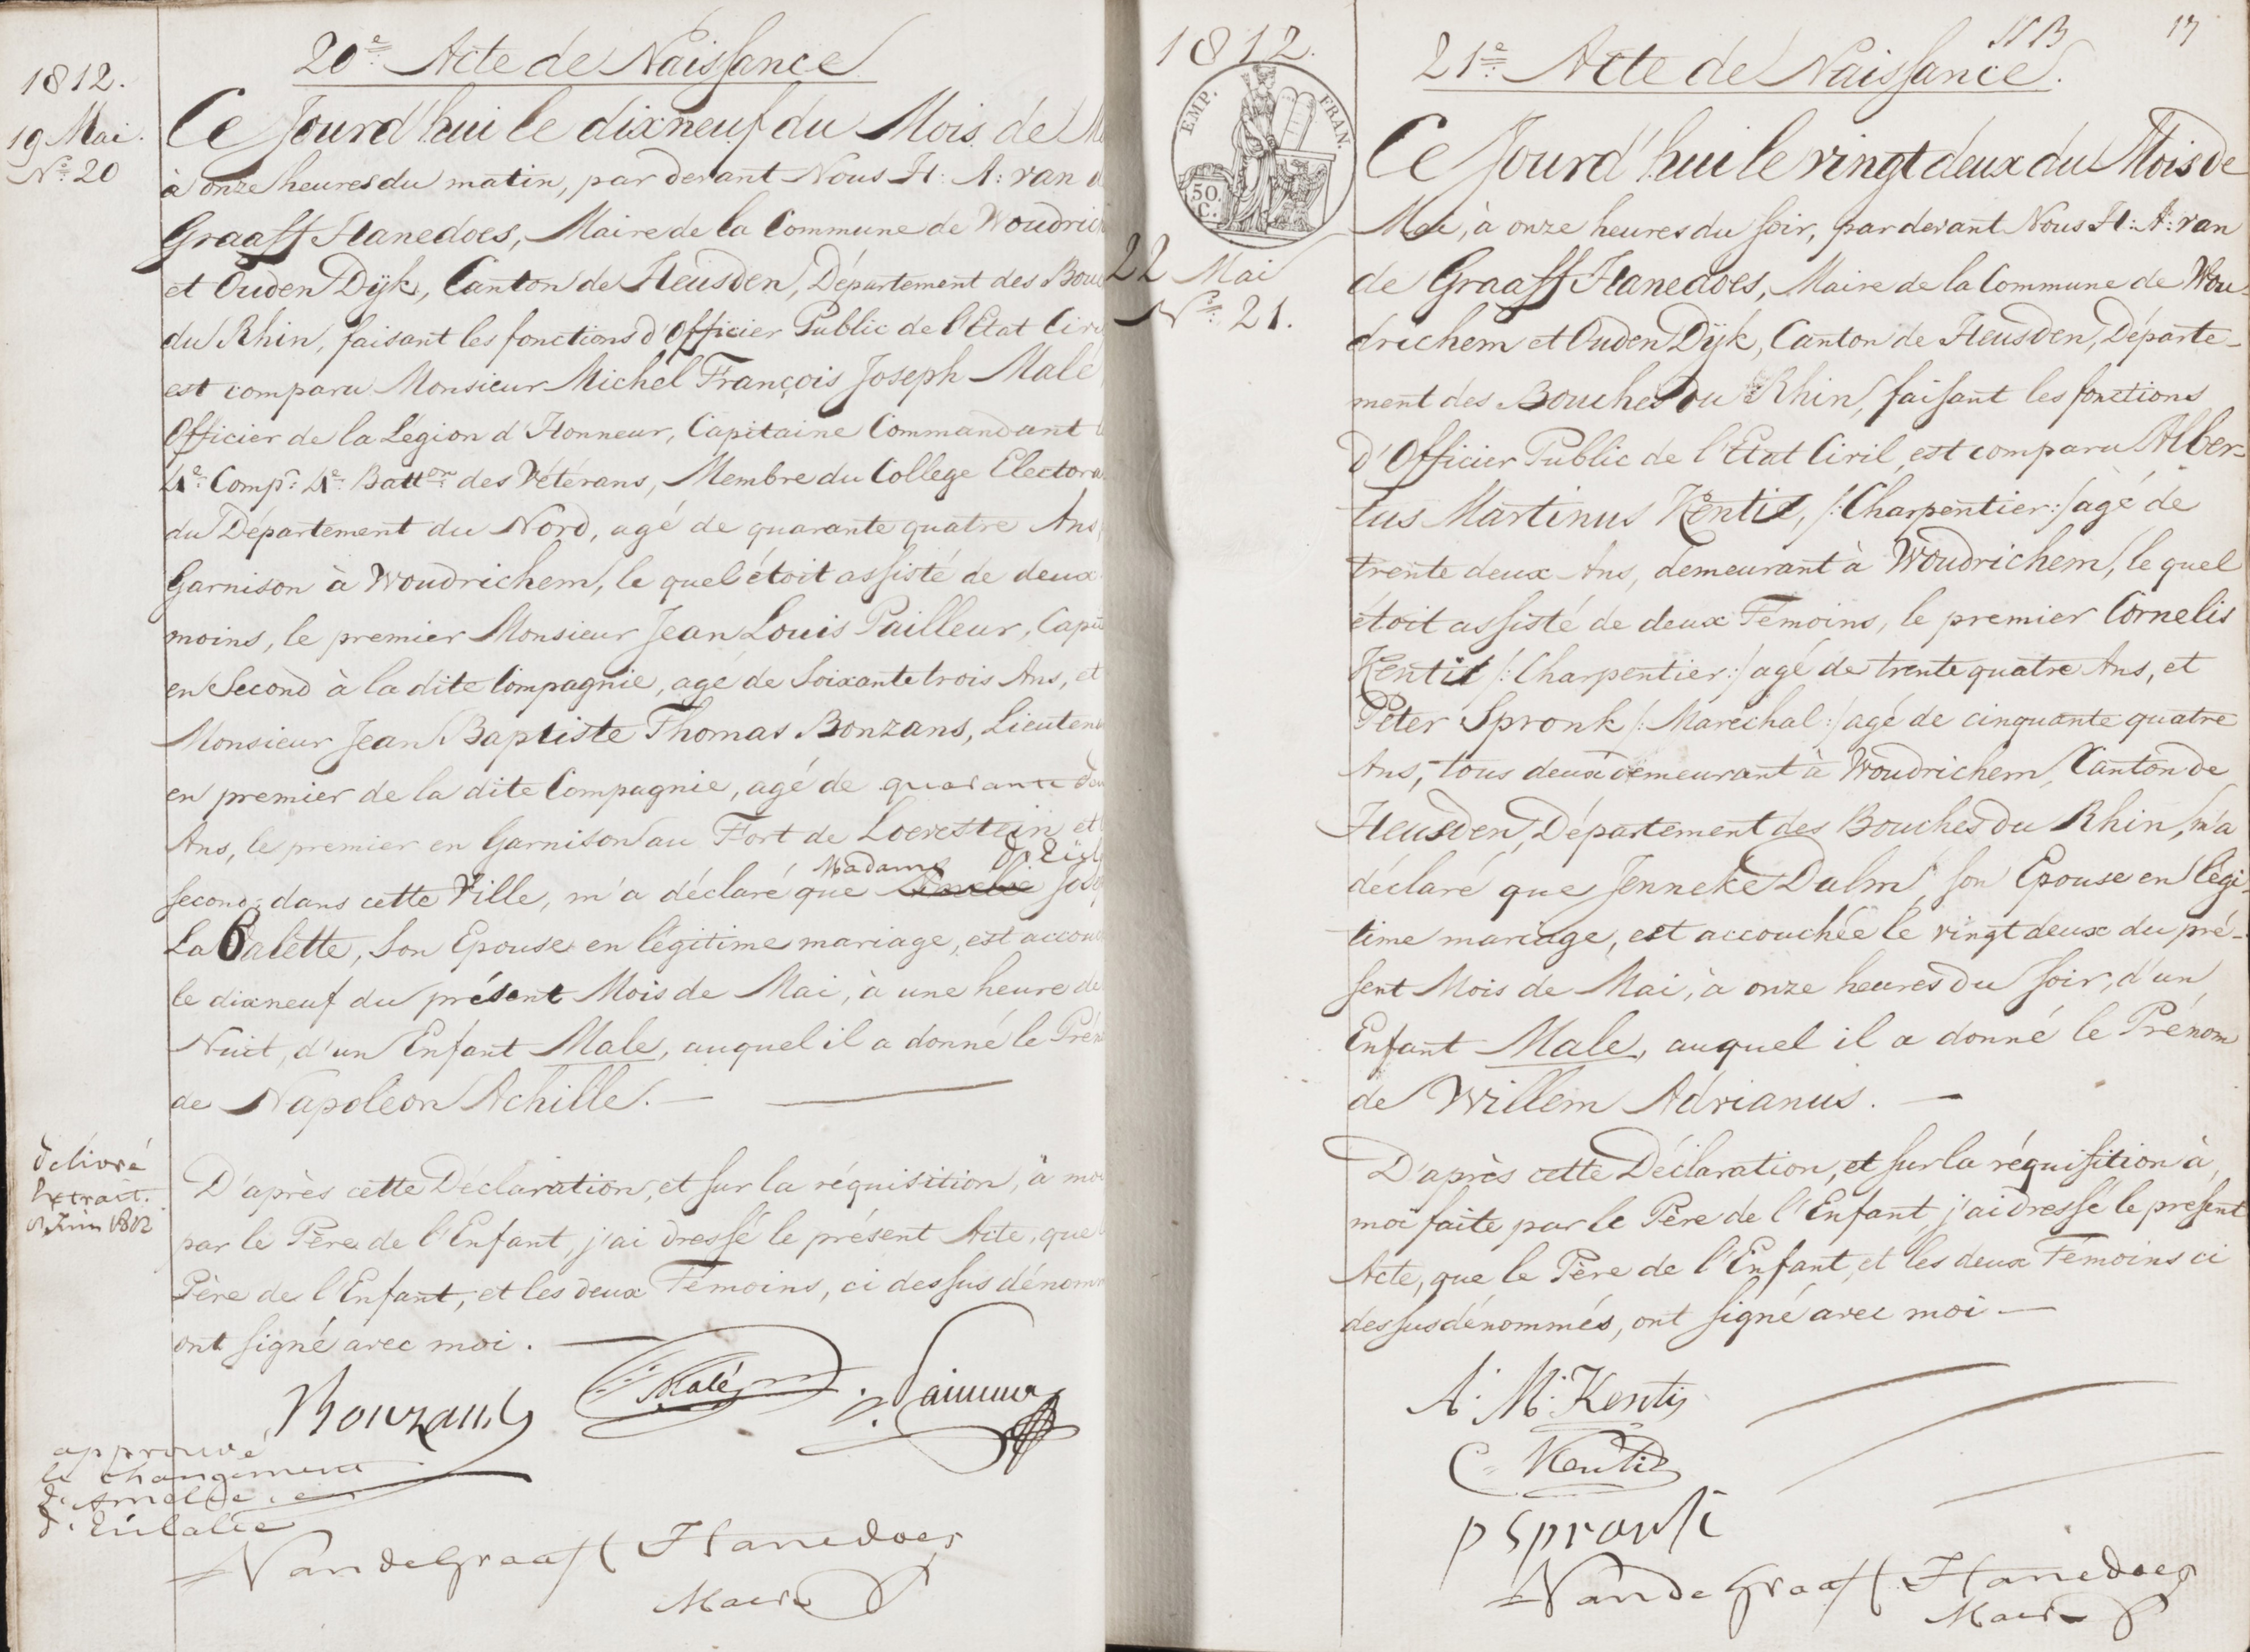 1812.
19 Mai.
No. 20
20e. Acte de Naissance
Ce Jourd'hui le dixneuf du Mois de
à onze heures du matin, par devant Nous H: A: van
Graaff Hanedoes, Maire de la Commune de Woudrich
et Ouden Dijk, Canton de Heusden, Département des Bouc
du Rhin, faisant les fonctions d'Officier Public de l'Etat Civ
est comparu Monsieur Michel François Joseph Malé
Officier de la Légion d'Honneur, Capitaine Commandant
4e: Compe: 4e: Batton: des Vétérans, Membre du College Electora
du Département du Nord, agé de quarante quatre Ans,
Garnison à Woudrichem, le quel étoit assisté de deux
moins, le premier Monsieur Jean Louis Pailleur, Capit
en Second à la dite Compagnie, agé de Soixante trois Ans, et
Monsieur Jean Baptiste Thomas Bonzans, Lieuten
en premier de la dite Compagnie, agé de quarante deu
Ans, le premier en Garnison au Fort de Loevestein et
second: dans cette Ville, m'a déclaré que Madame Jos
La Galette, Son Epouse en légitime mariage, est accou
le dixneuf du présent Mois de Mai, à une heure de
Nuit, d'un Enfant Male, auquel il a donné le Prén
de Napoleon Achille. —
D'après cette Déclaration, et sur la réquisition, à moi
par le Père de l'Enfant, j'ai dressé le présent Acte, que
Père de l'Enfant, et les deux Témoins, ci dessus dénom
ont signé avec moi. —
delivré
Extrait.
Juin 1812
Bouzans
Malé
approuvé
le changement
d'Amelie en
d'Eulalie
VandeGraaff Hanedoes
Maire
1812.
EMP. FRAN.
50. C.
22 Mai
No. 21.
NB
17
21e. Acte de Naissance.
Ce Jourd'hui le vingt deux du Mois de
Mai, à onze heures du soir, par devant Nous H: A: van
de Graaff Hanedoes, Maire de la Commune de Wou-
drichem et Ouden Dijk, Canton de Heusden, Départe-
ment des Bouches du Rhin, faisant les fonctions
d'Officier Public de l'Etat Civil, est comparu Alber-
tus Martinus Kentis, /:Charpentier:/ agé de
trente deux Ans, demeurant à Woudrichem, le quel
étoit assisté de deux Témoins, le premier Cornelis
Kentis /:Charpentier:/ agé de trente quatre Ans, et
Peter Spronk /:Maréchal:/ agé de cinquante quatre
Ans, tous deux demeurant à Woudrichem, Canton de
Heusden, Département des Bouches du Rhin, m'a
déclaré que Jenneke Dalm, son Epouse en légi-
time mariage, est accouchée le vingt deux du pré-
sent Mois de Mai, à onze heures du soir, d'un
Enfant Male, auquel il a donné le Prénom
de Willem Adrianus. —
D'après cette Déclaration, et sur la réquisition à
moi faite par le Père de l'Enfant, j'ai dressé le present
Acte, que le Père de l'Enfant, et les deux Témoins ci
dessus dénommés, ont signé avec moi —
A: M: Kentis
C. Kentis
p Spronk
VandeGraaff Hanedoes
Maire